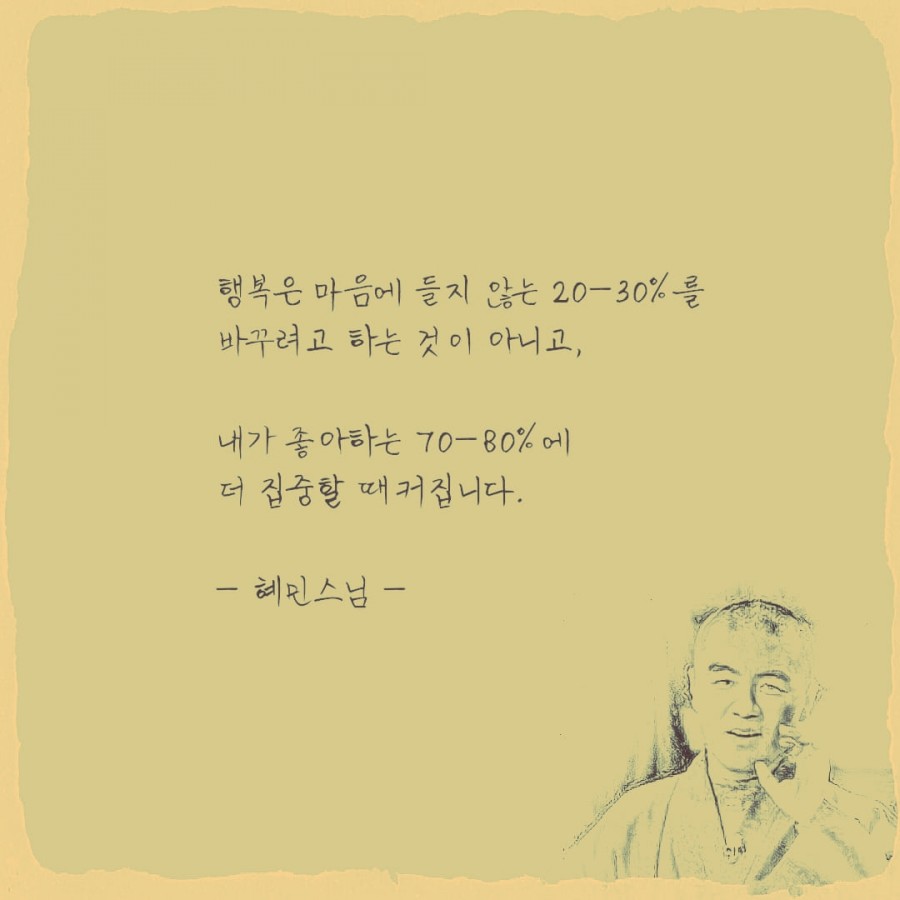 행복은 마음에 들지 않는 20-30%를
바꾸려고 하는 것이 아니고,
내가 좋아하는 70-80%에
더 집중할 때 커집니다.
- 혜민스님 -